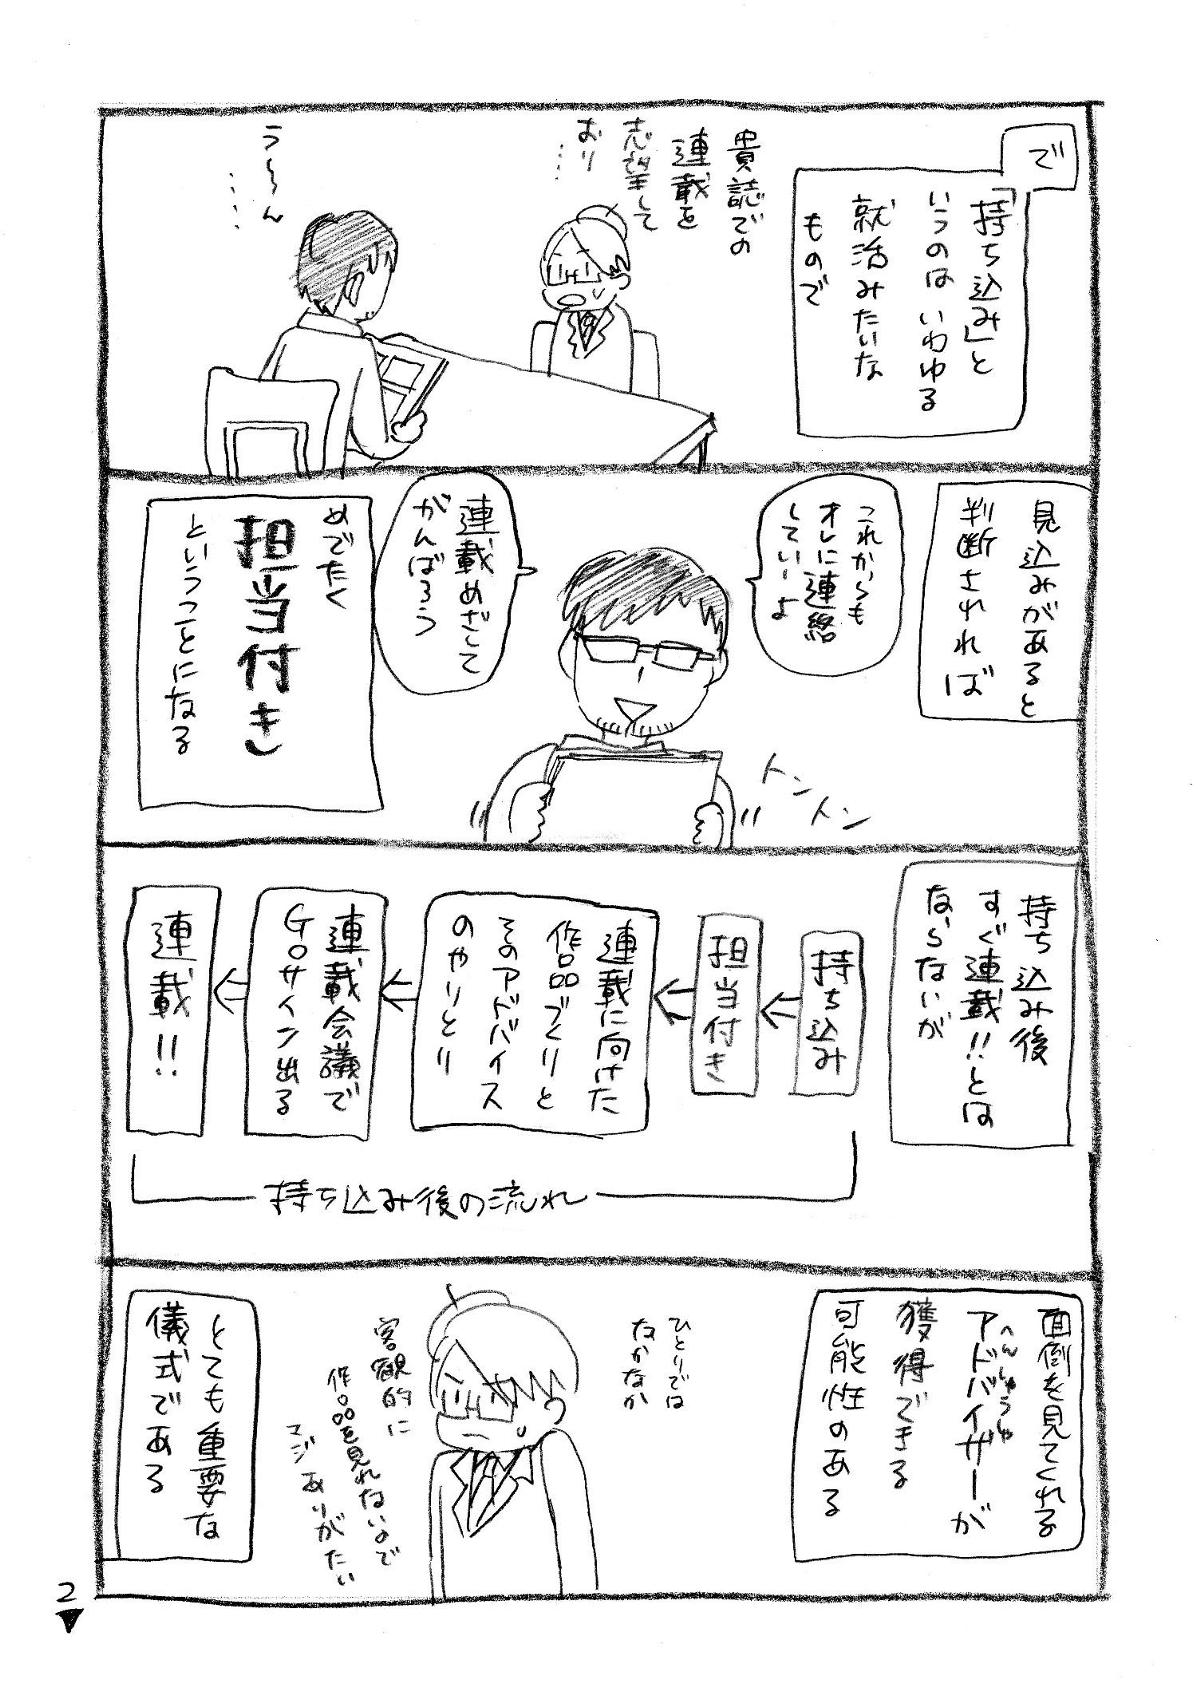 で
「持ち込み」と
いうのはいわゆる
就活みたいな
もので
貴誌での
連載を
志望して
おり
……
う〜〜ん
……
見込みがあると
判断されれば
これからも
オレに連絡
していーよ
連載めざして
がんばろう
トントン
めでたく
担当付き
ということになる
持ち込み後
すぐ連載!!とは
ならないが
持ち込み
担当付き
連載に向けた
作品づくりと
そのアドバイス
のやりとり
連載会議で
GOサイン出る
連載!!
持ち込み後の流れ
面倒を見てくれる
アドバイザーが
へんしゅうしゃ
獲得できる
可能性のある
ひとりでは
なかなか
客観的に
作品を見れないので
マジありがたい
とても重要な
儀式である
2